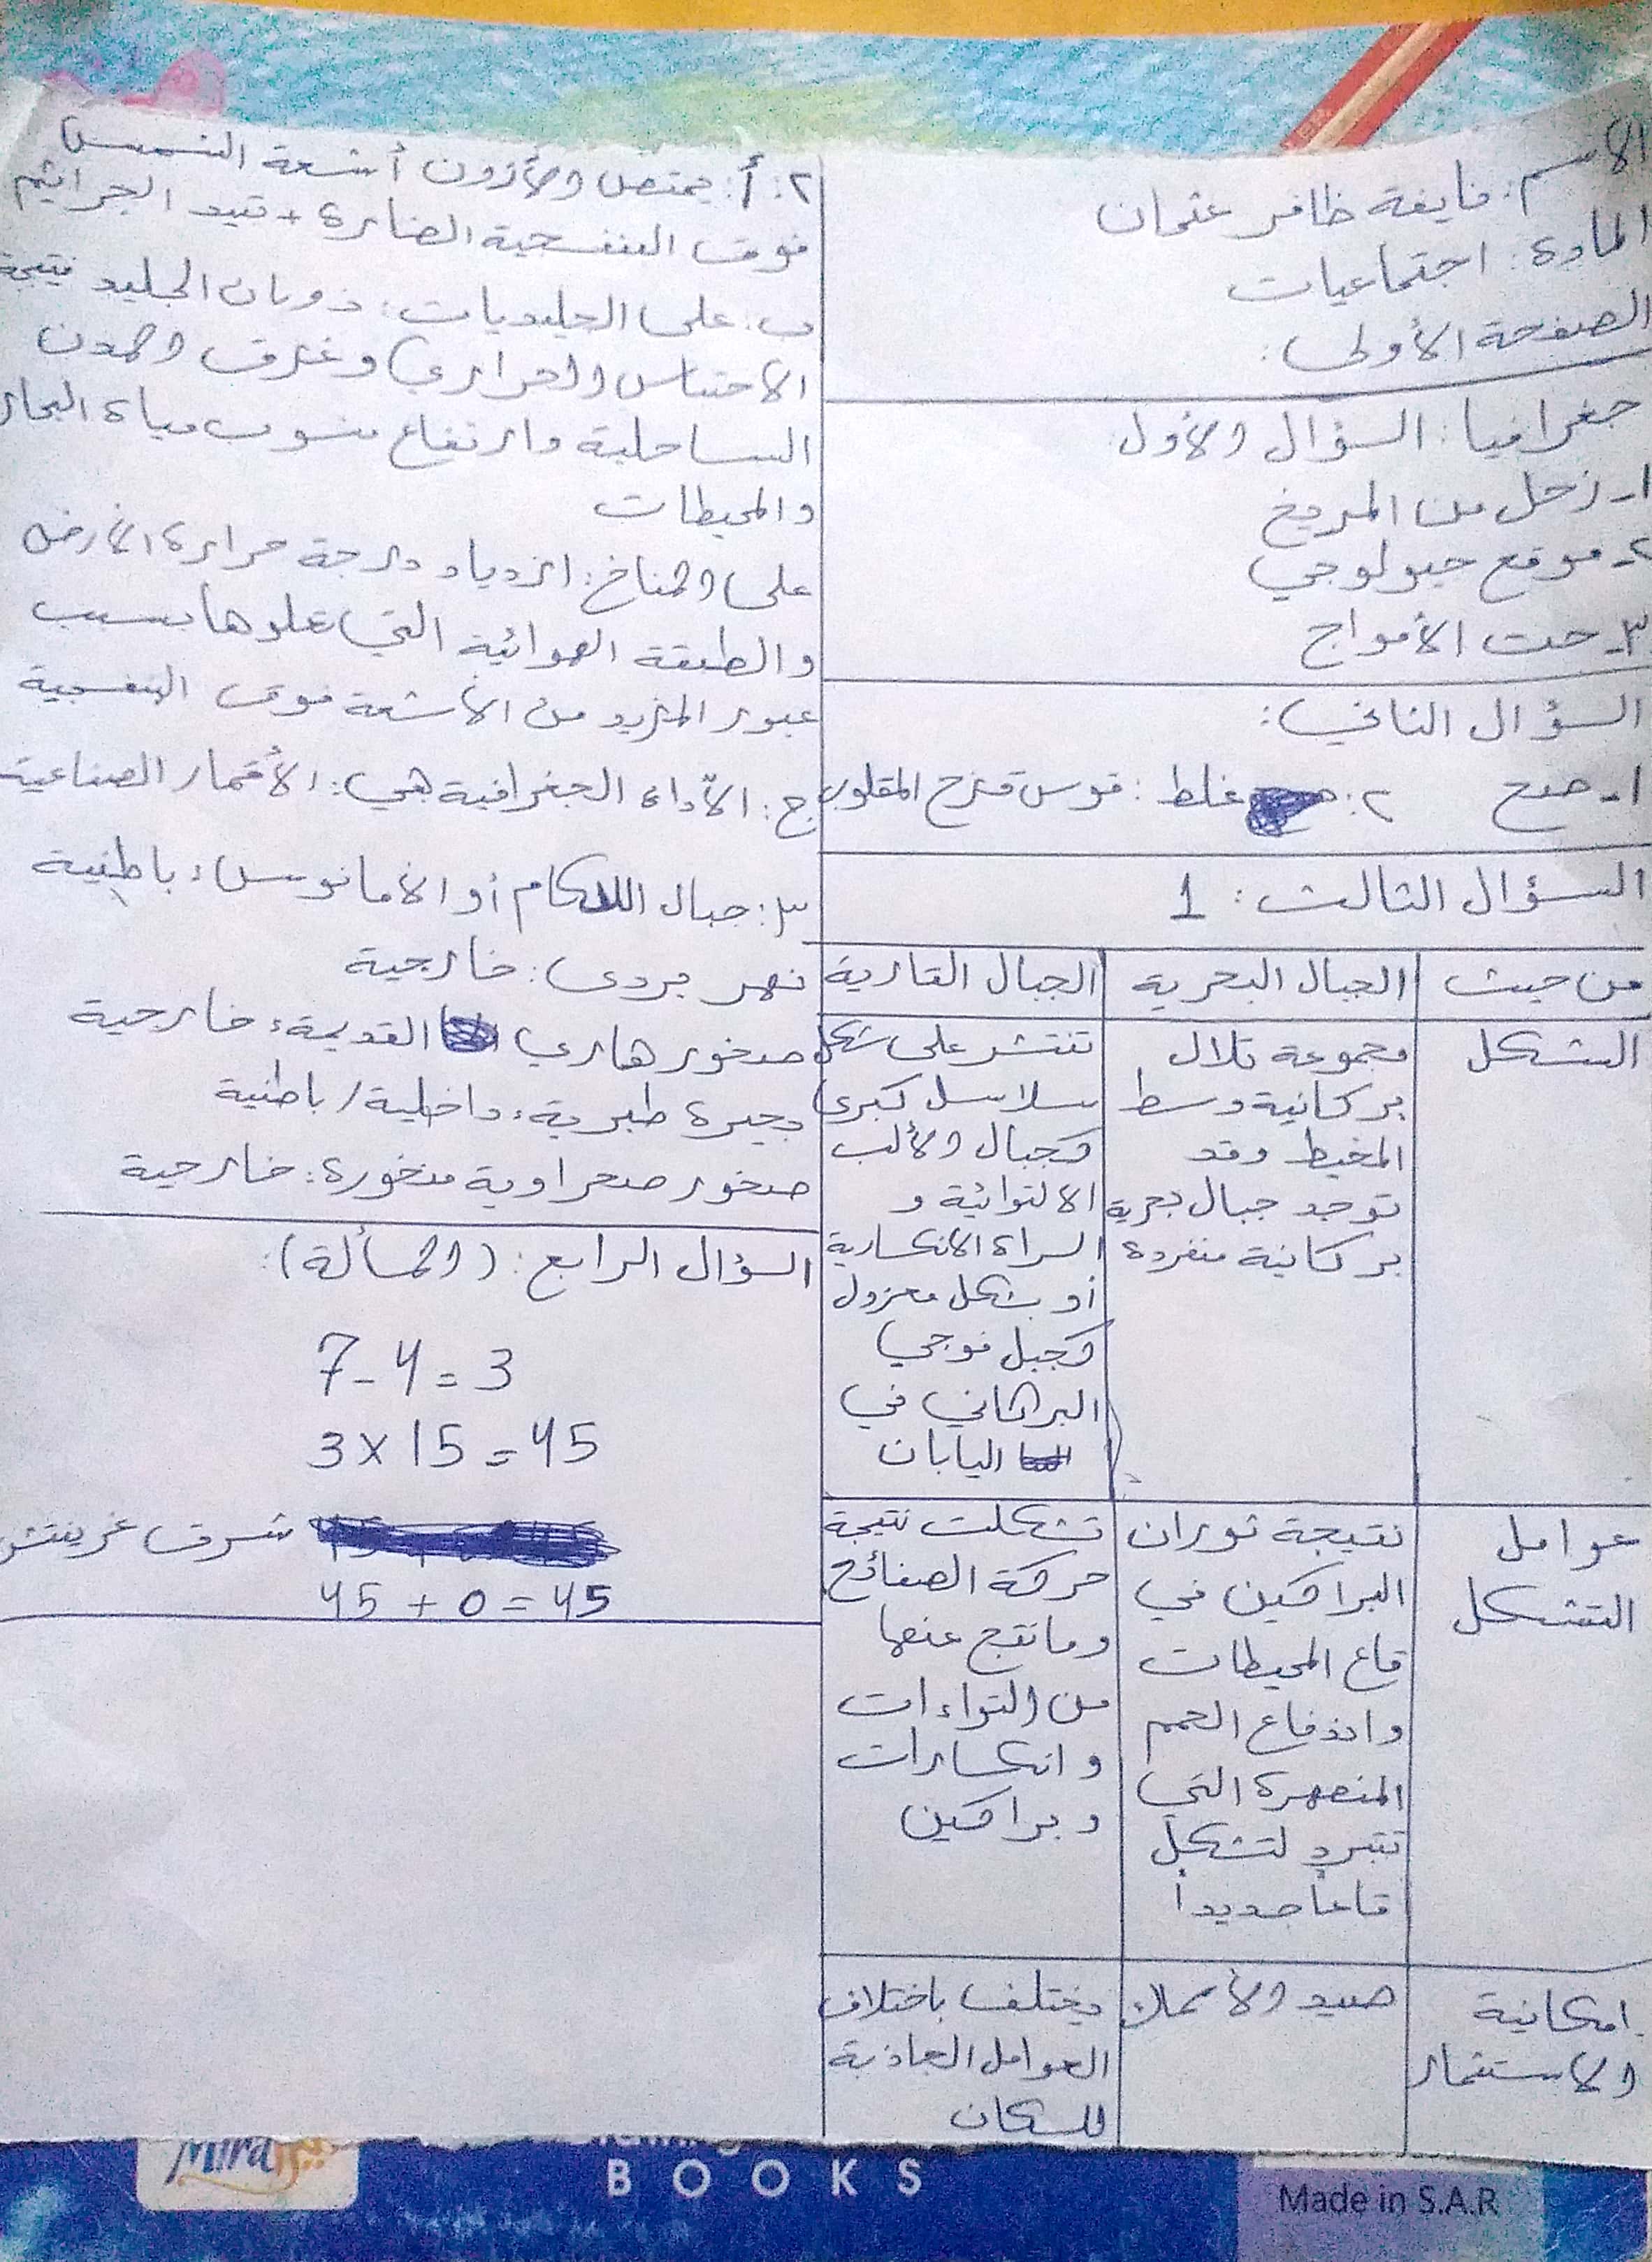 الاسم: فايفة ظافر عثمان
المادة: اجتماعيات
الصفحة الأولى:
جغرافيا: السؤال الأول
١- زحل من المريخ
٢- موقع جيولوجي
٣- حت الأمواج
السؤال الثاني:
١- صح ٢: غلط: قوس قزح المقلوب
السؤال الثالث: 1
من حيث الجبال البحرية الجبال القارية
الشكل
مجموعة تلال
بركانية وسط
المحيط وقد
توجد جبال بحرية
بركانية منفردة
تنتشر على شكل
سلاسل كبرى
كجبال الألب
الالتوائية و
السراة الانكسارية
أو بشكل معزول
كجبل فوجي
البركاني في
اليابان
عوامل
التشكل
نتيجة ثوران
البراكين في
قاع المحيطات
واندفاع الحمم
المنصهرة التي
تتبرد لتشكل
قاعاً جديداً
تشكلت نتيجة
حركة الصفائح
وما نتج عنها
من التواءات
وانكسارات
وبراكين
امكانية
الاستثمار
صيد الأسماك
يختلف باختلاف
العوامل الجاذبة
للسكان
٢: أ: يمتص الأزون أشعة الشمس
فوق البنفسجية الضارة + تبيد الجراثيم
ب: على الجليديات: ذوبان الجليد نتيجة
الاحتباس الحراري وغرق المدن
الساحلية وارتفاع منسوب مياه البحار
والمحيطات
على المناخ: ازدياد درجة حرارة الأرض
والطبقة الهوائية التي تعلوها بسبب
عبور المزيد من الأشعة فوق البنفسجية
ج: الأداة الجغرافية هي: الأقمار الصناعية
٣: جبال اللكام أو الأمانوس: باطنية
نهر بردى: خارجية
صخور هاري القديمة: خارجية
بحيرة طبرية: داخلية / باطنية
صخور صحراوية منخورة: خارجية
السؤال الرابع: (المسألة):
7 - 4 = 3
3 x 15 = 45
شرق غرينتش
45 + 0 = 45
Mira
BOOKS
Made in S.A.R